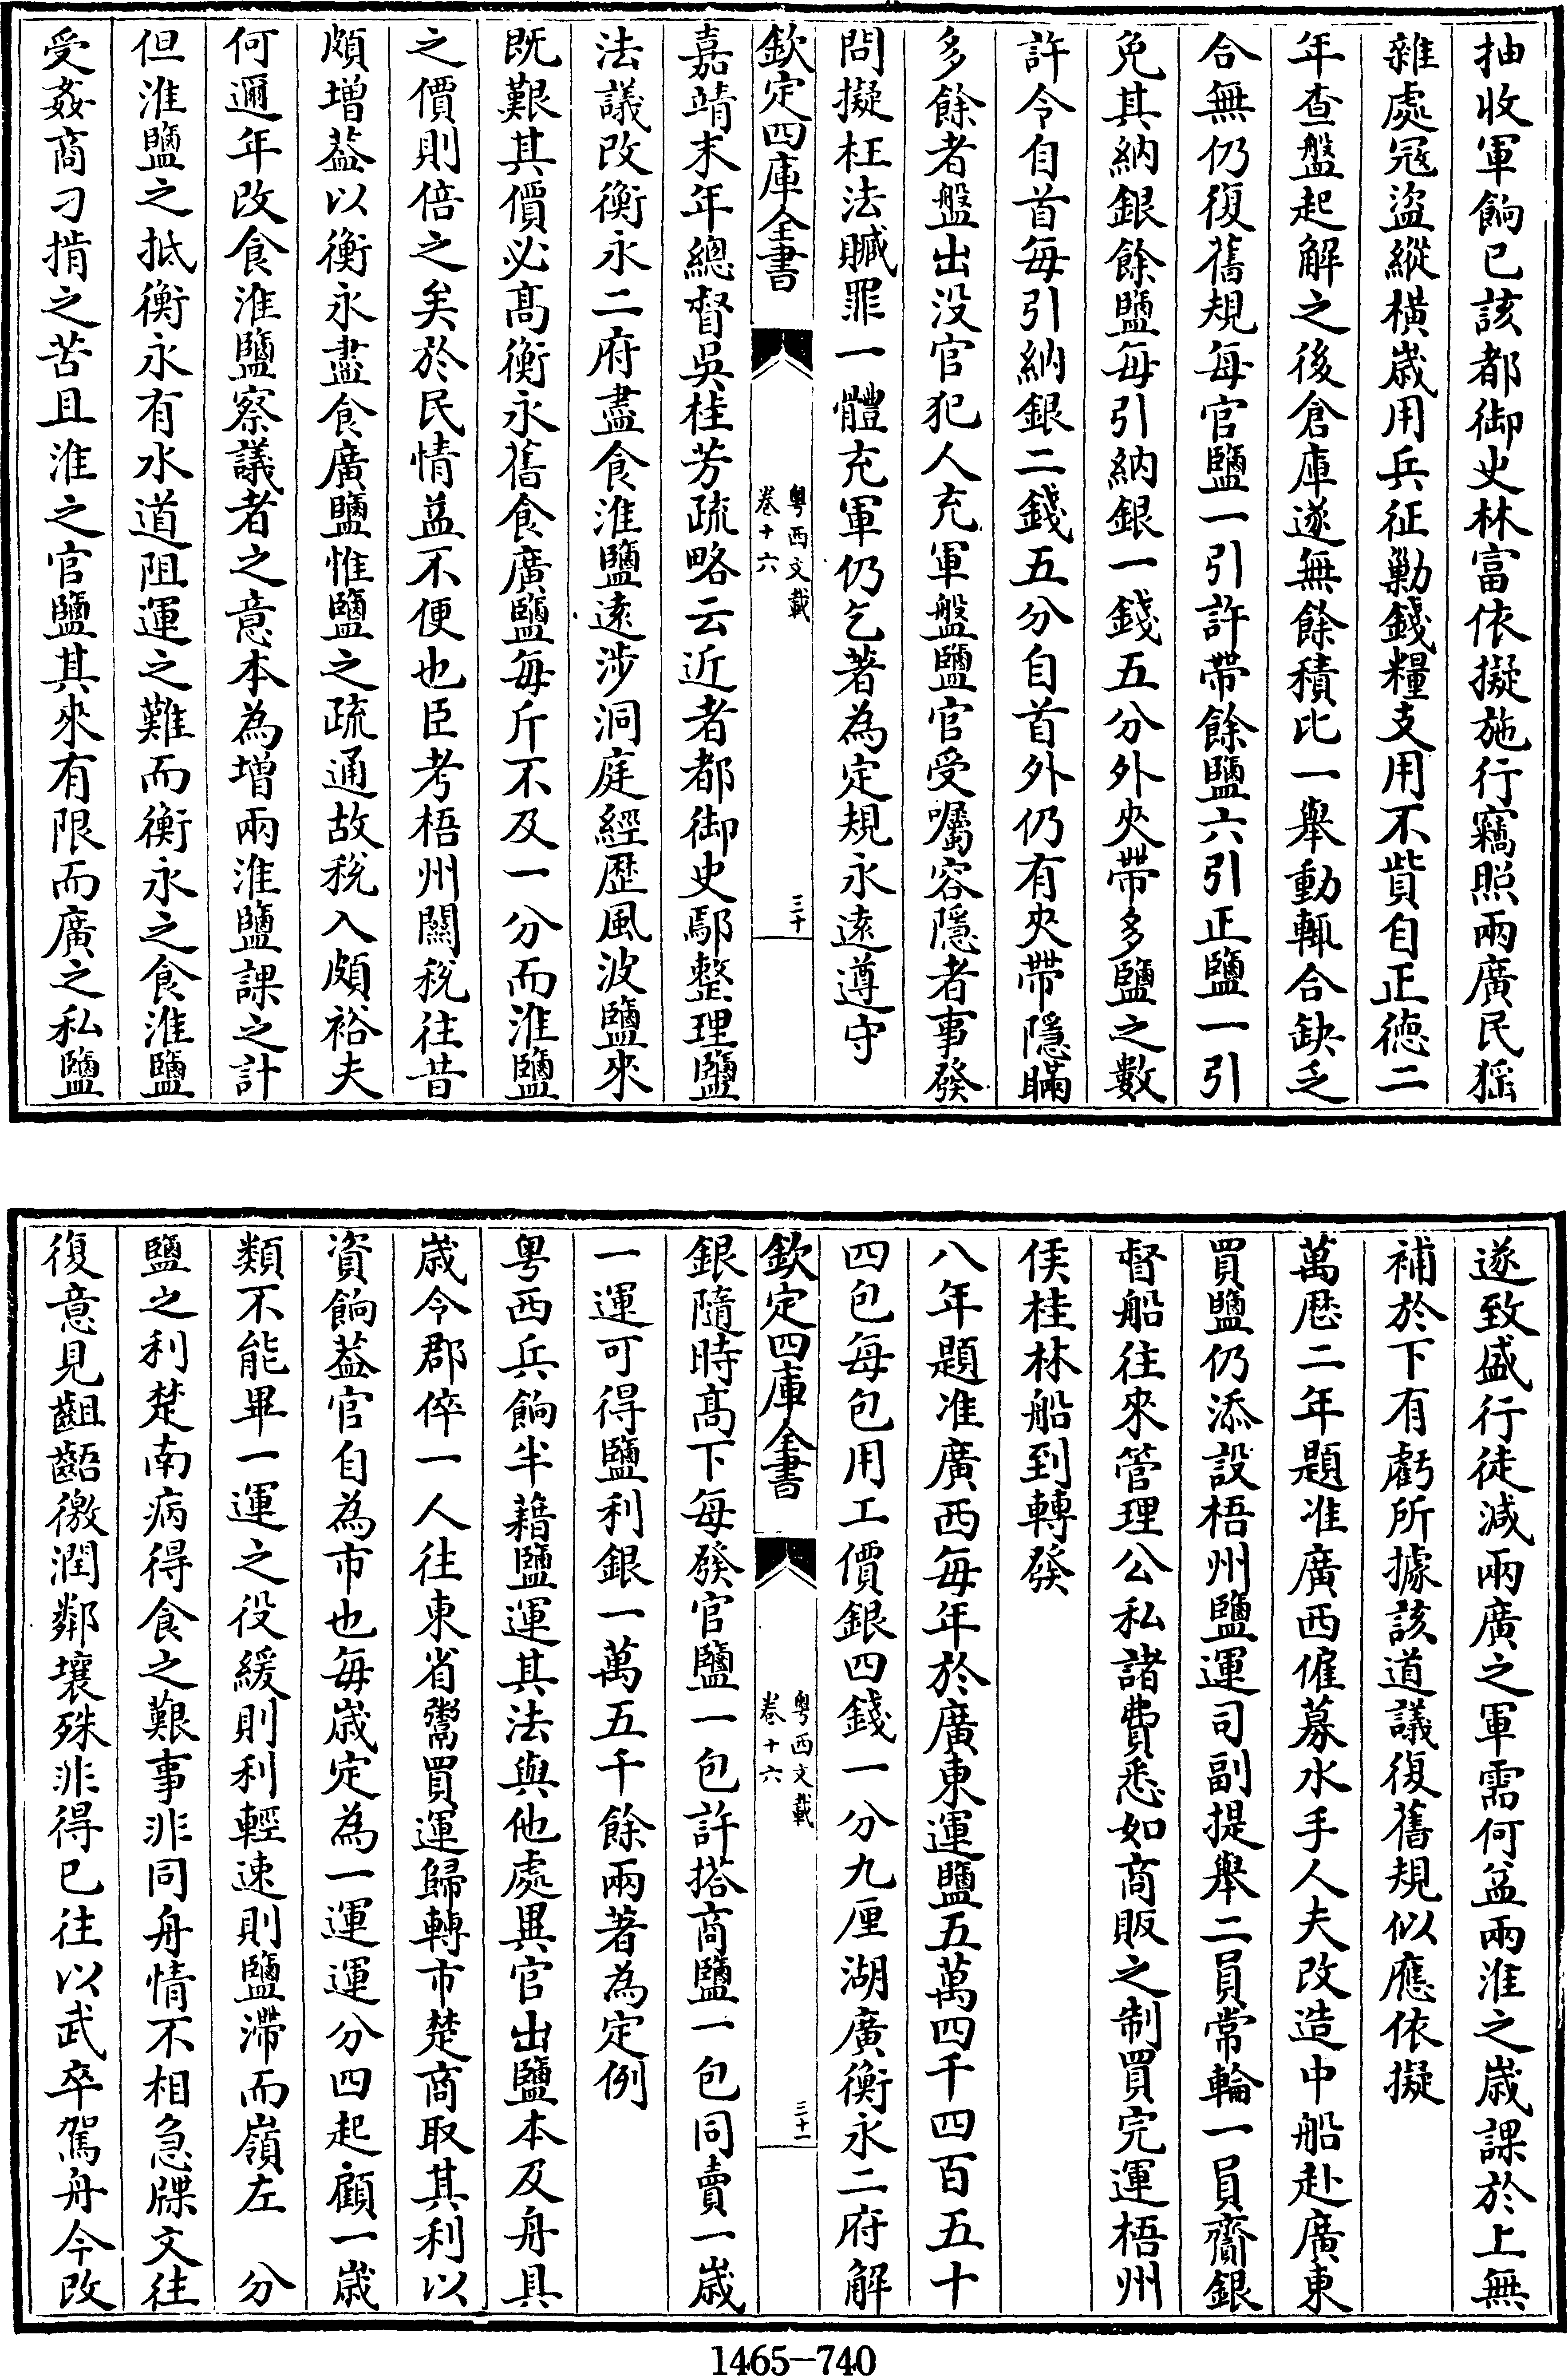 抽收軍餉已該都御史林富依擬施行竊照兩廣民猺
雜處冦盜縱横歳用兵征勦錢糧支用不貲自正徳二
年查盤起解之後倉庫遂無餘積比一舉動輒合缺乏
合無仍復舊規每官鹽一引許帶餘鹽六引正鹽一引
免其納銀餘鹽每引納銀一錢五分外夾帶多鹽之數
許令自首每引納銀二錢五分自首外仍有夾帶隱瞞
多餘者盤出没官犯人充軍盤鹽官受囑容隱者事發
問擬枉法贓罪一體充軍仍乞著為定規永遠遵守
欽定四庫全書
粤西文載
卷十六
三十
嘉靖末年總督吳桂芳疏略云近者都御史鄢整理鹽
法議改衡永二府盡食淮鹽遠涉洞庭經歴風波鹽來
既艱其價必髙衡永舊食廣鹽每斤不及一分而淮鹽
之價則倍之矣於民情益不便也臣考梧州關稅往昔
頗増葢以衡永盡食廣鹽惟鹽之疏通故稅入頗裕夫
何邇年改食淮鹽察議者之意本為増兩淮鹽課之計
但淮鹽之抵衡永有水道阻運之難而衡永之食淮鹽
受姦商刁掯之苦且淮之官鹽其來有限而廣之私鹽
遂致盛行徒減兩廣之軍需何益兩淮之歳課於上無
補於下有虧所據該道議復舊規似應依擬
萬厯二年題准廣西僱募水手人夫改造中船赴廣東
買鹽仍添設梧州鹽運司副提舉二員常輪一員齎銀
督船往來管理公私諸費悉如商販之制買完運梧州
俟桂林船到轉發
八年題准廣西每年於廣東運鹽五萬四千四百五十
四包每包用工價銀四錢一分九厘湖廣衡永二府解
欽定四庫全書
粤西文載
卷十六
三十一
銀隨時髙下每發官鹽一包許搭商鹽一包同賣一歳
一運可得鹽利銀一萬五千餘兩著為定例
粤西兵餉半藉鹽運其法與他處異官出鹽本及舟具
歳令郡倅一人往東省鬻買運歸轉市楚商取其利以
資餉葢官自為市也每歳定為一運運分四起顧一歳
類不能畢一運之役緩則利輕速則鹽滯而嶺左　分
鹽之利楚南病得食之艱事非同舟情不相急牒文往
復意見齟齬徼潤鄰壤殊非得已往以武卒駕舟今改
1465-740